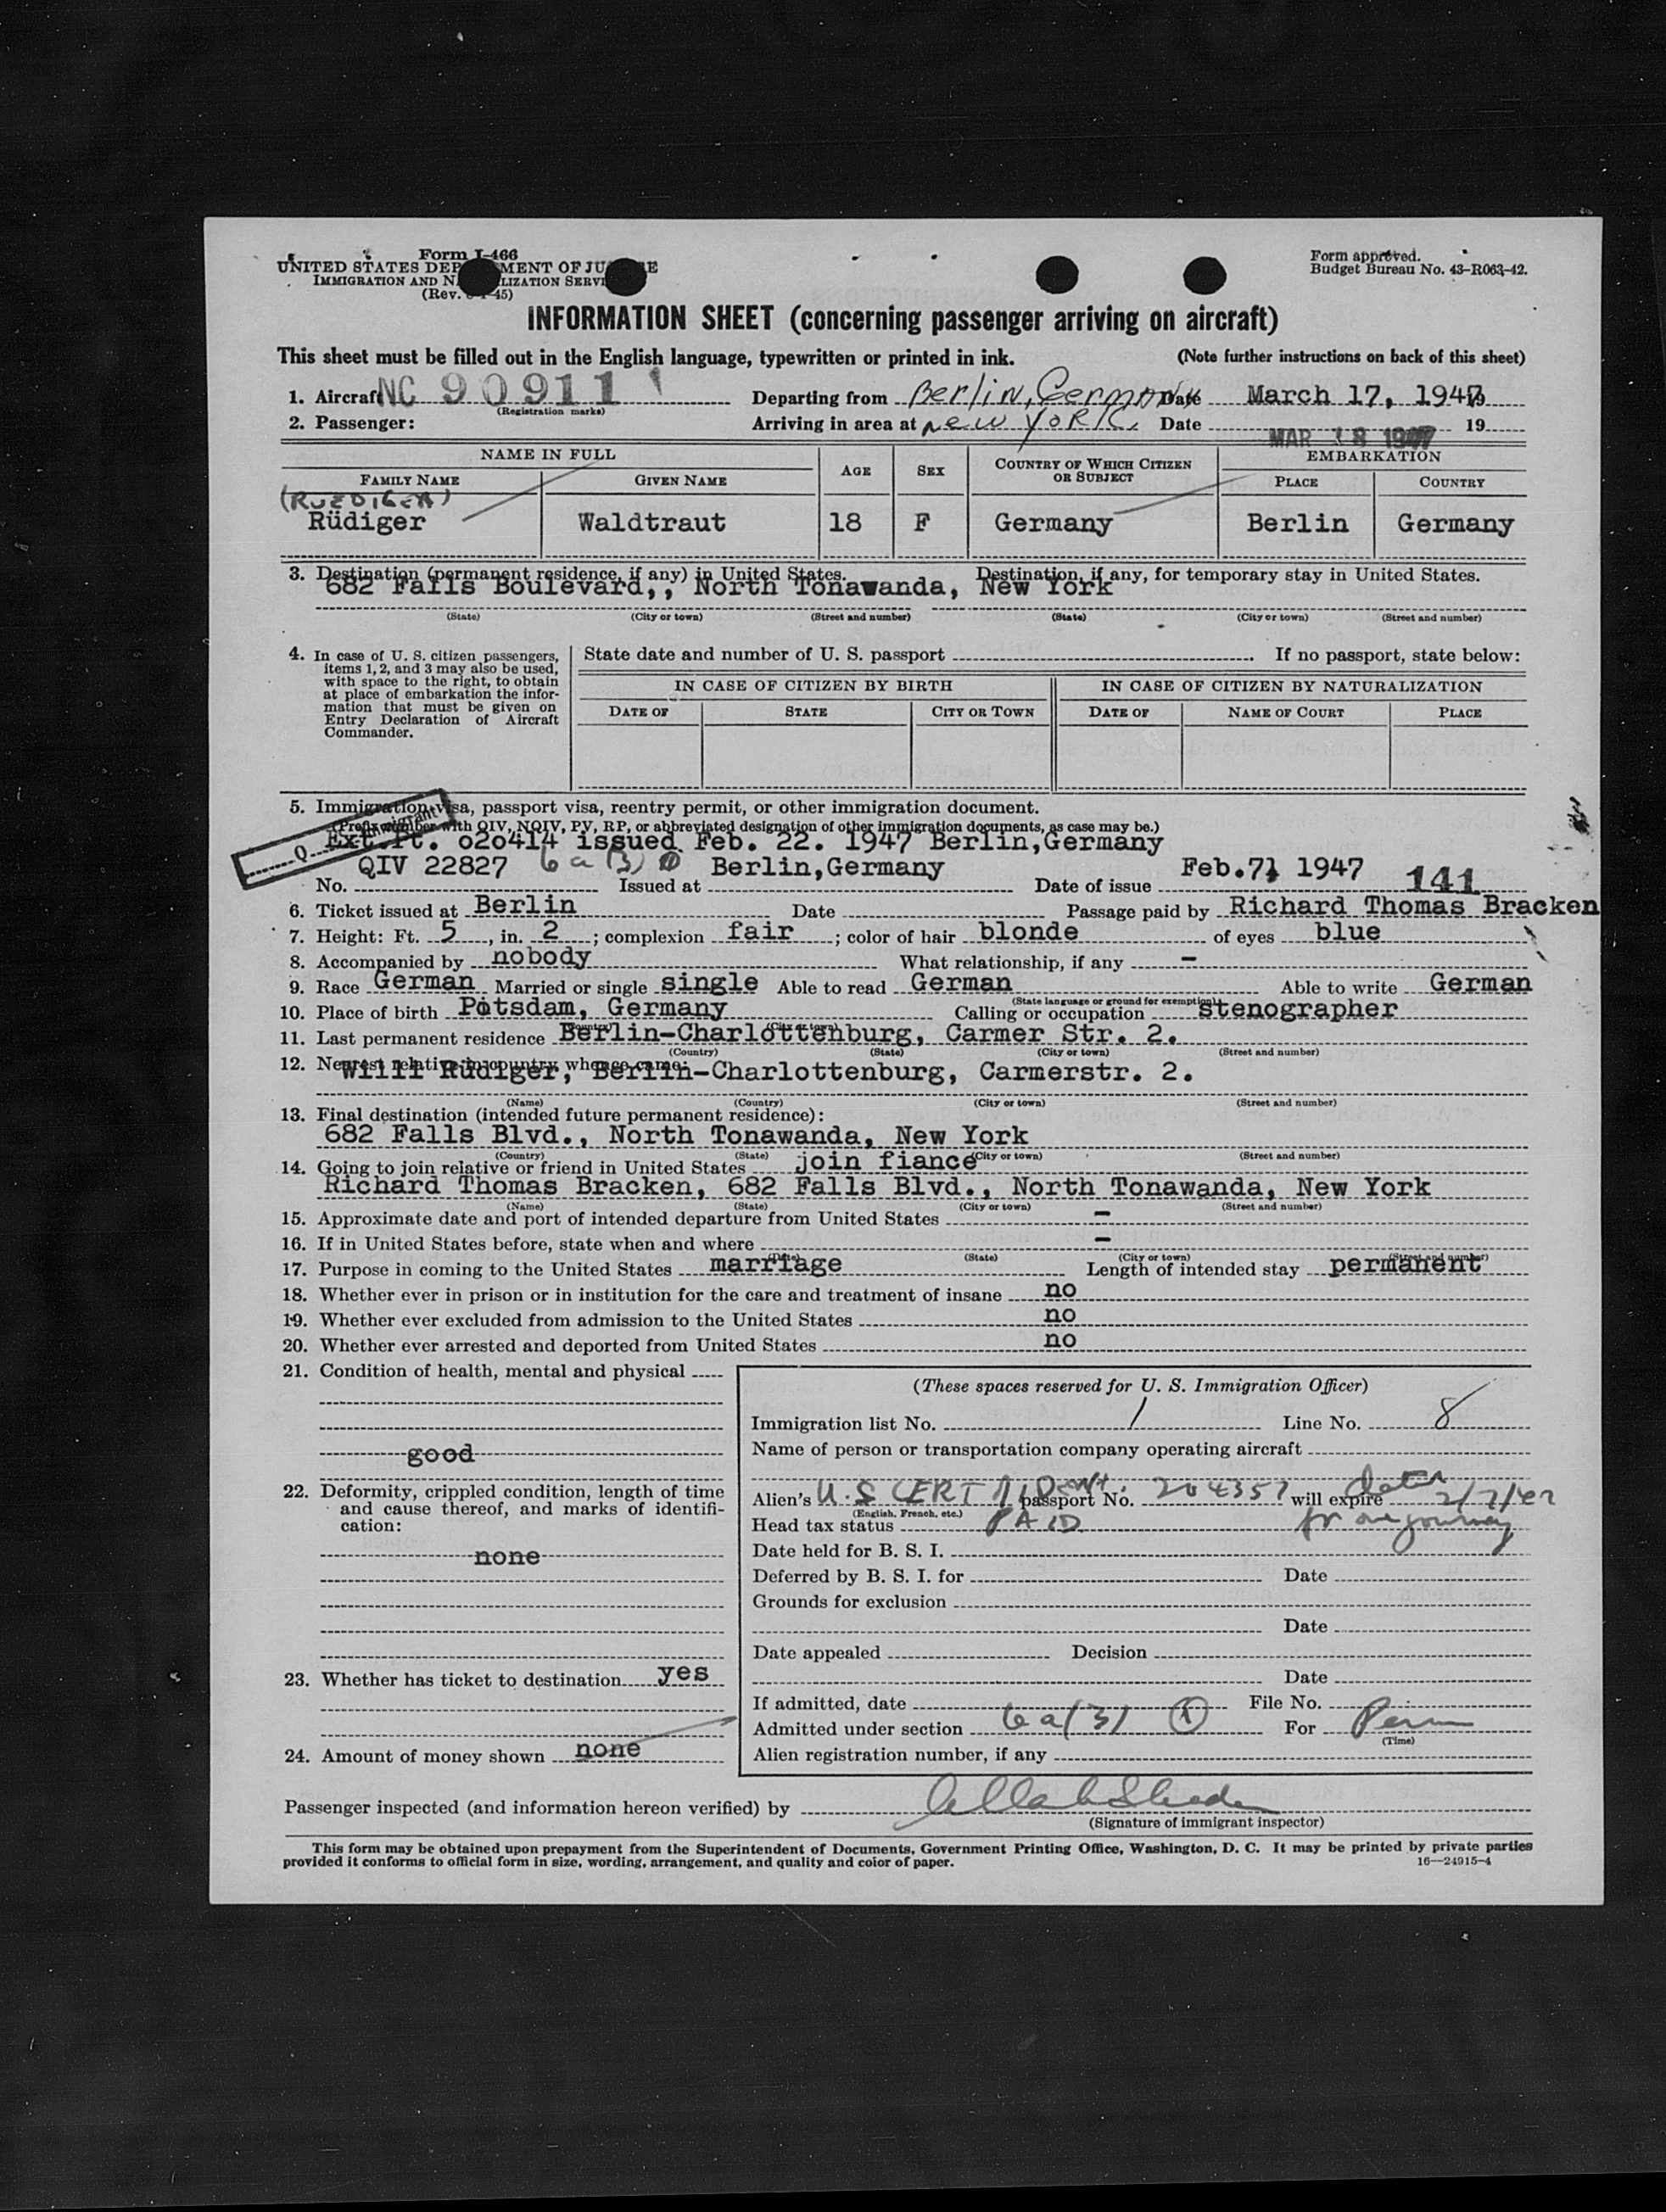 Form I-466
UNITED STATES DEP MENT OF JU E
IMMIGRATION AND N LIZATION SERVI
(Rev. 45)
Form approved.
Budget Bureau No. 43-R063-42.
INFORMATION SHEET (concerning passenger arriving on aircraft)
This sheet must be filled out in the English language, typewritten or printed in ink. (Note further instructions on back of this sheet)
1. Aircraft NC 90911 Departing from Berlin, Germany Date March 17, 1947
(Registration marks)
2. Passenger: Arriving in area at New York. Date MAR 18 1947 19
NAME IN FULL AGE SEX COUNTRY OF WHICH CITIZEN OR SUBJECT EMBARKATION
FAMILY NAME GIVEN NAME PLACE COUNTRY
(RUEDIGER)
Rüdiger Waldtraut 18 F Germany Berlin Germany
3. Destination (permanent residence, if any) in United States. Destination, if any, for temporary stay in United States.
682 Falls Boulevard,, North Tonawanda, New York
(State) (City or town) (Street and number) (State) (City or town) (Street and number)
4. In case of U. S. citizen passengers, items 1, 2, and 3 may also be used, with space to the right, to obtain at place of embarkation the information that must be given on Entry Declaration of Aircraft Commander.
State date and number of U. S. passport If no passport, state below:
IN CASE OF CITIZEN BY BIRTH IN CASE OF CITIZEN BY NATURALIZATION
DATE OF STATE CITY OR TOWN DATE OF NAME OF COURT PLACE
5. Immigration visa, passport visa, reentry permit, or other immigration document.
(Prefix number with QIV, NQIV, PV, RP, or abbreviated designation of other immigration documents, as case may be.)
Q Immigrant
Ext.Pt. 020414 issued Feb. 22. 1947 Berlin,Germany
No. QIV 22827 6a(3) Issued at Berlin,Germany Date of issue Feb.7, 1947 141
6. Ticket issued at Berlin Date Passage paid by Richard Thomas Bracken
7. Height: Ft. 5, in. 2; complexion fair; color of hair blonde of eyes blue
8. Accompanied by nobody What relationship, if any -
9. Race German Married or single single Able to read German Able to write German
(State language or ground for exemption)
10. Place of birth Potsdam, Germany Calling or occupation stenographer
(Country) (City or town)
11. Last permanent residence Berlin-Charlottenburg, Carmer Str. 2.
(Country) (State) (City or town) (Street and number)
12. Nearest relative in country whence came:
Willi Rüdiger, Berlin-Charlottenburg, Carmerstr. 2.
(Name) (Country) (City or town) (Street and number)
13. Final destination (intended future permanent residence):
682 Falls Blvd., North Tonawanda, New York
(Country) (State) (City or town) (Street and number)
14. Going to join relative or friend in United States join fiance
Richard Thomas Bracken, 682 Falls Blvd., North Tonawanda, New York
(Name) (State) (City or town) (Street and number)
15. Approximate date and port of intended departure from United States -
16. If in United States before, state when and where -
(Date) (State) (City or town) (Street and number)
17. Purpose in coming to the United States marriage Length of intended stay permanent
18. Whether ever in prison or in institution for the care and treatment of insane no
19. Whether ever excluded from admission to the United States no
20. Whether ever arrested and deported from United States no
21. Condition of health, mental and physical
good
22. Deformity, crippled condition, length of time and cause thereof, and marks of identification:
none
23. Whether has ticket to destination yes
24. Amount of money shown none
(These spaces reserved for U. S. Immigration Officer)
Immigration list No. 1 Line No. 8
Name of person or transportation company operating aircraft
Alien's U.S CERT Ident. passport No. 204357 will expire date 2/7/47
(English, French, etc.)
Head tax status PAID for one journey
Date held for B. S. I.
Deferred by B. S. I. for Date
Grounds for exclusion
Date
Date appealed Decision
Date
If admitted, date File No.
Admitted under section 6a(3) 1 For Perm
(Time)
Alien registration number, if any
Passenger inspected (and information hereon verified) by
(Signature of immigrant inspector)
This form may be obtained upon prepayment from the Superintendent of Documents, Government Printing Office, Washington, D. C. It may be printed by private parties
provided it conforms to official form in size, wording, arrangement, and quality and color of paper.
16—24915-4